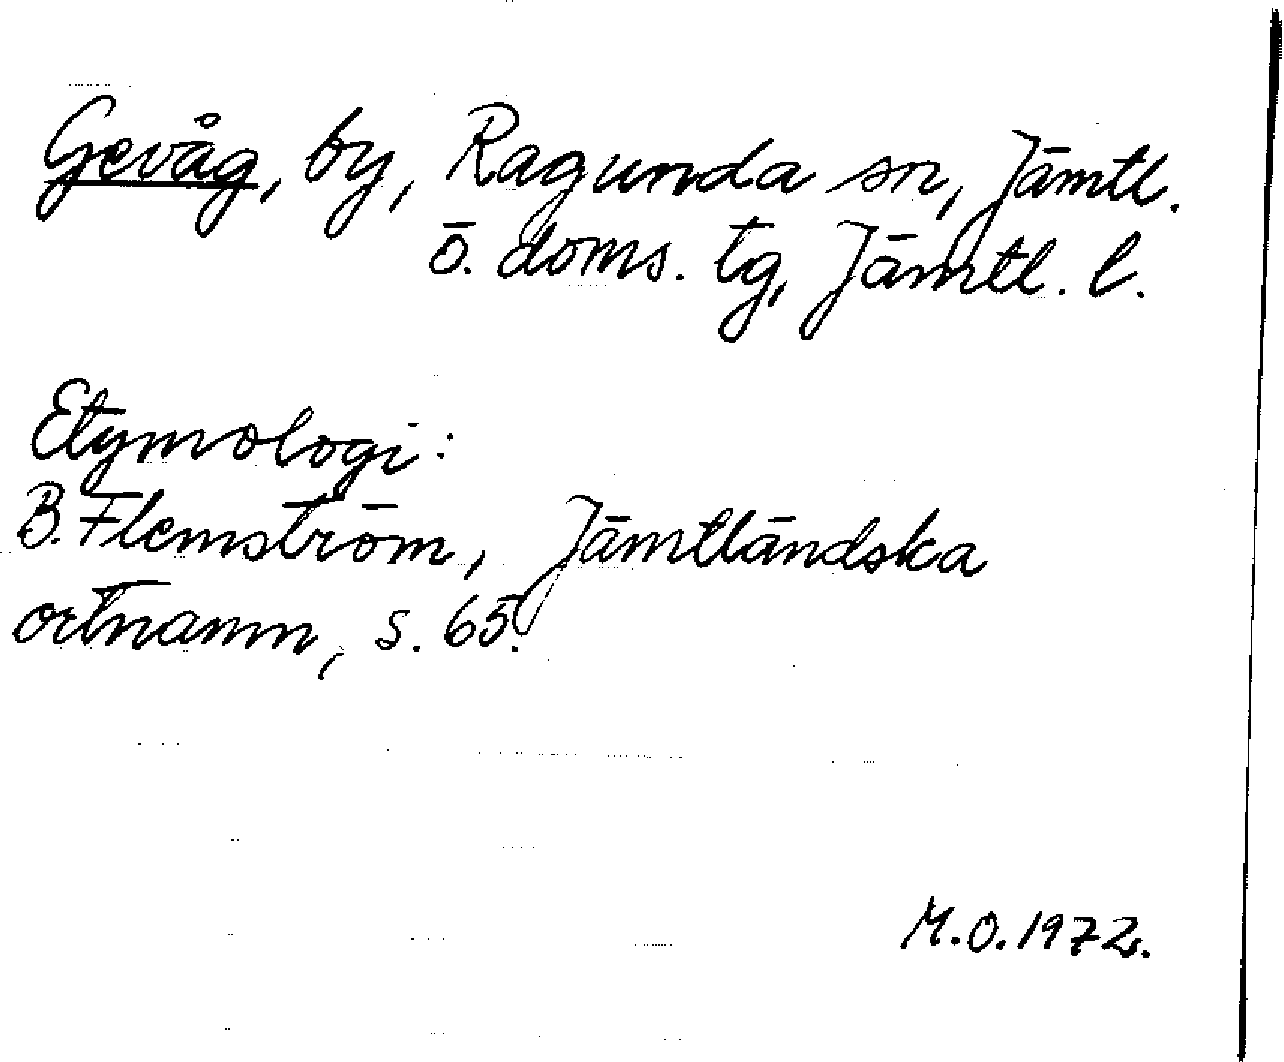 Gevåg, by, Ragunda sn, Jämtl.
ö. doms. tg, Jämtl. l.
Etymologi:
B. Flemström, Jämtländska
ortnamn, s. 65.
M.O. 1972.